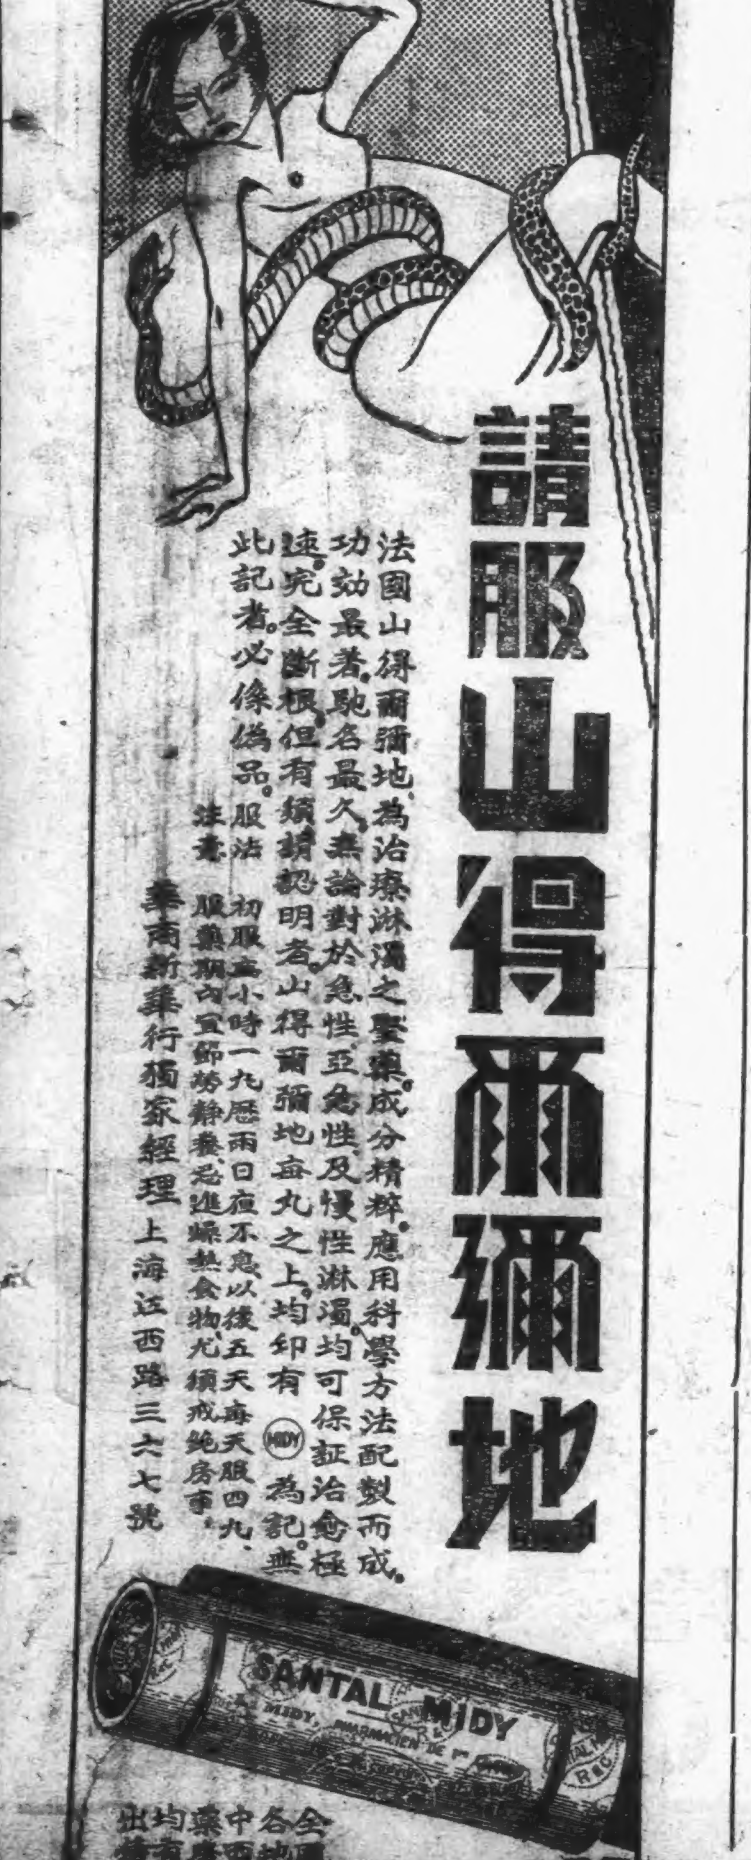 請服山得爾彌地
法國山得爾彌地、為治療淋濁之聖藥。成分精粹。應用科學方法配製而成。
功効最著。馳名最久。無論對於急性、亞急性、及慢性淋濁。均可保証治愈極
速。完全斷根。但有須請認明者。山得爾彌地每丸之上。均印有 MIDY 為記。無
此記者。必係偽品。
服法 初服每小時一丸歷兩日夜不息以後五天每天服四丸、
注意 服藥期內宜節勞靜養忌進燥熱食物、尤須戒絕房事、
華商新華行獨家經理 上海江西路三六七號
SANTAL MIDY
MIDY, PHARMACIEN DE 1re
全
各地
中西
藥
均有
出